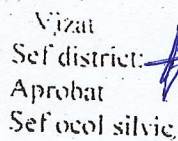 Vizat
Șef district:
Aprobat
Șef ocol silvic,